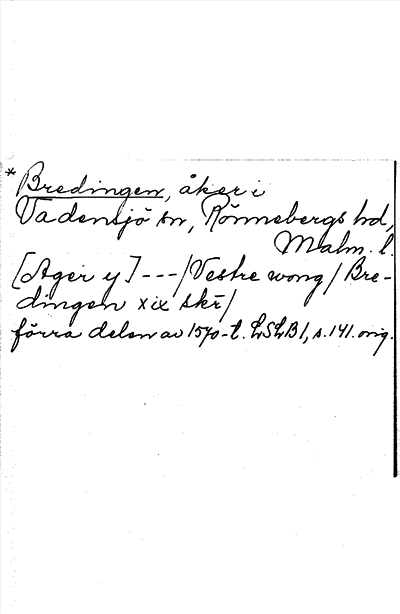 * Bredingen, åker i
Vadensjö sn, Rönnebergs hd,
Malm. l.
[Ager y] --- / Vestre wong / Bre-
dingen xix skr /
förra delen av 1570-t. LSLB 1, s. 141. orig.